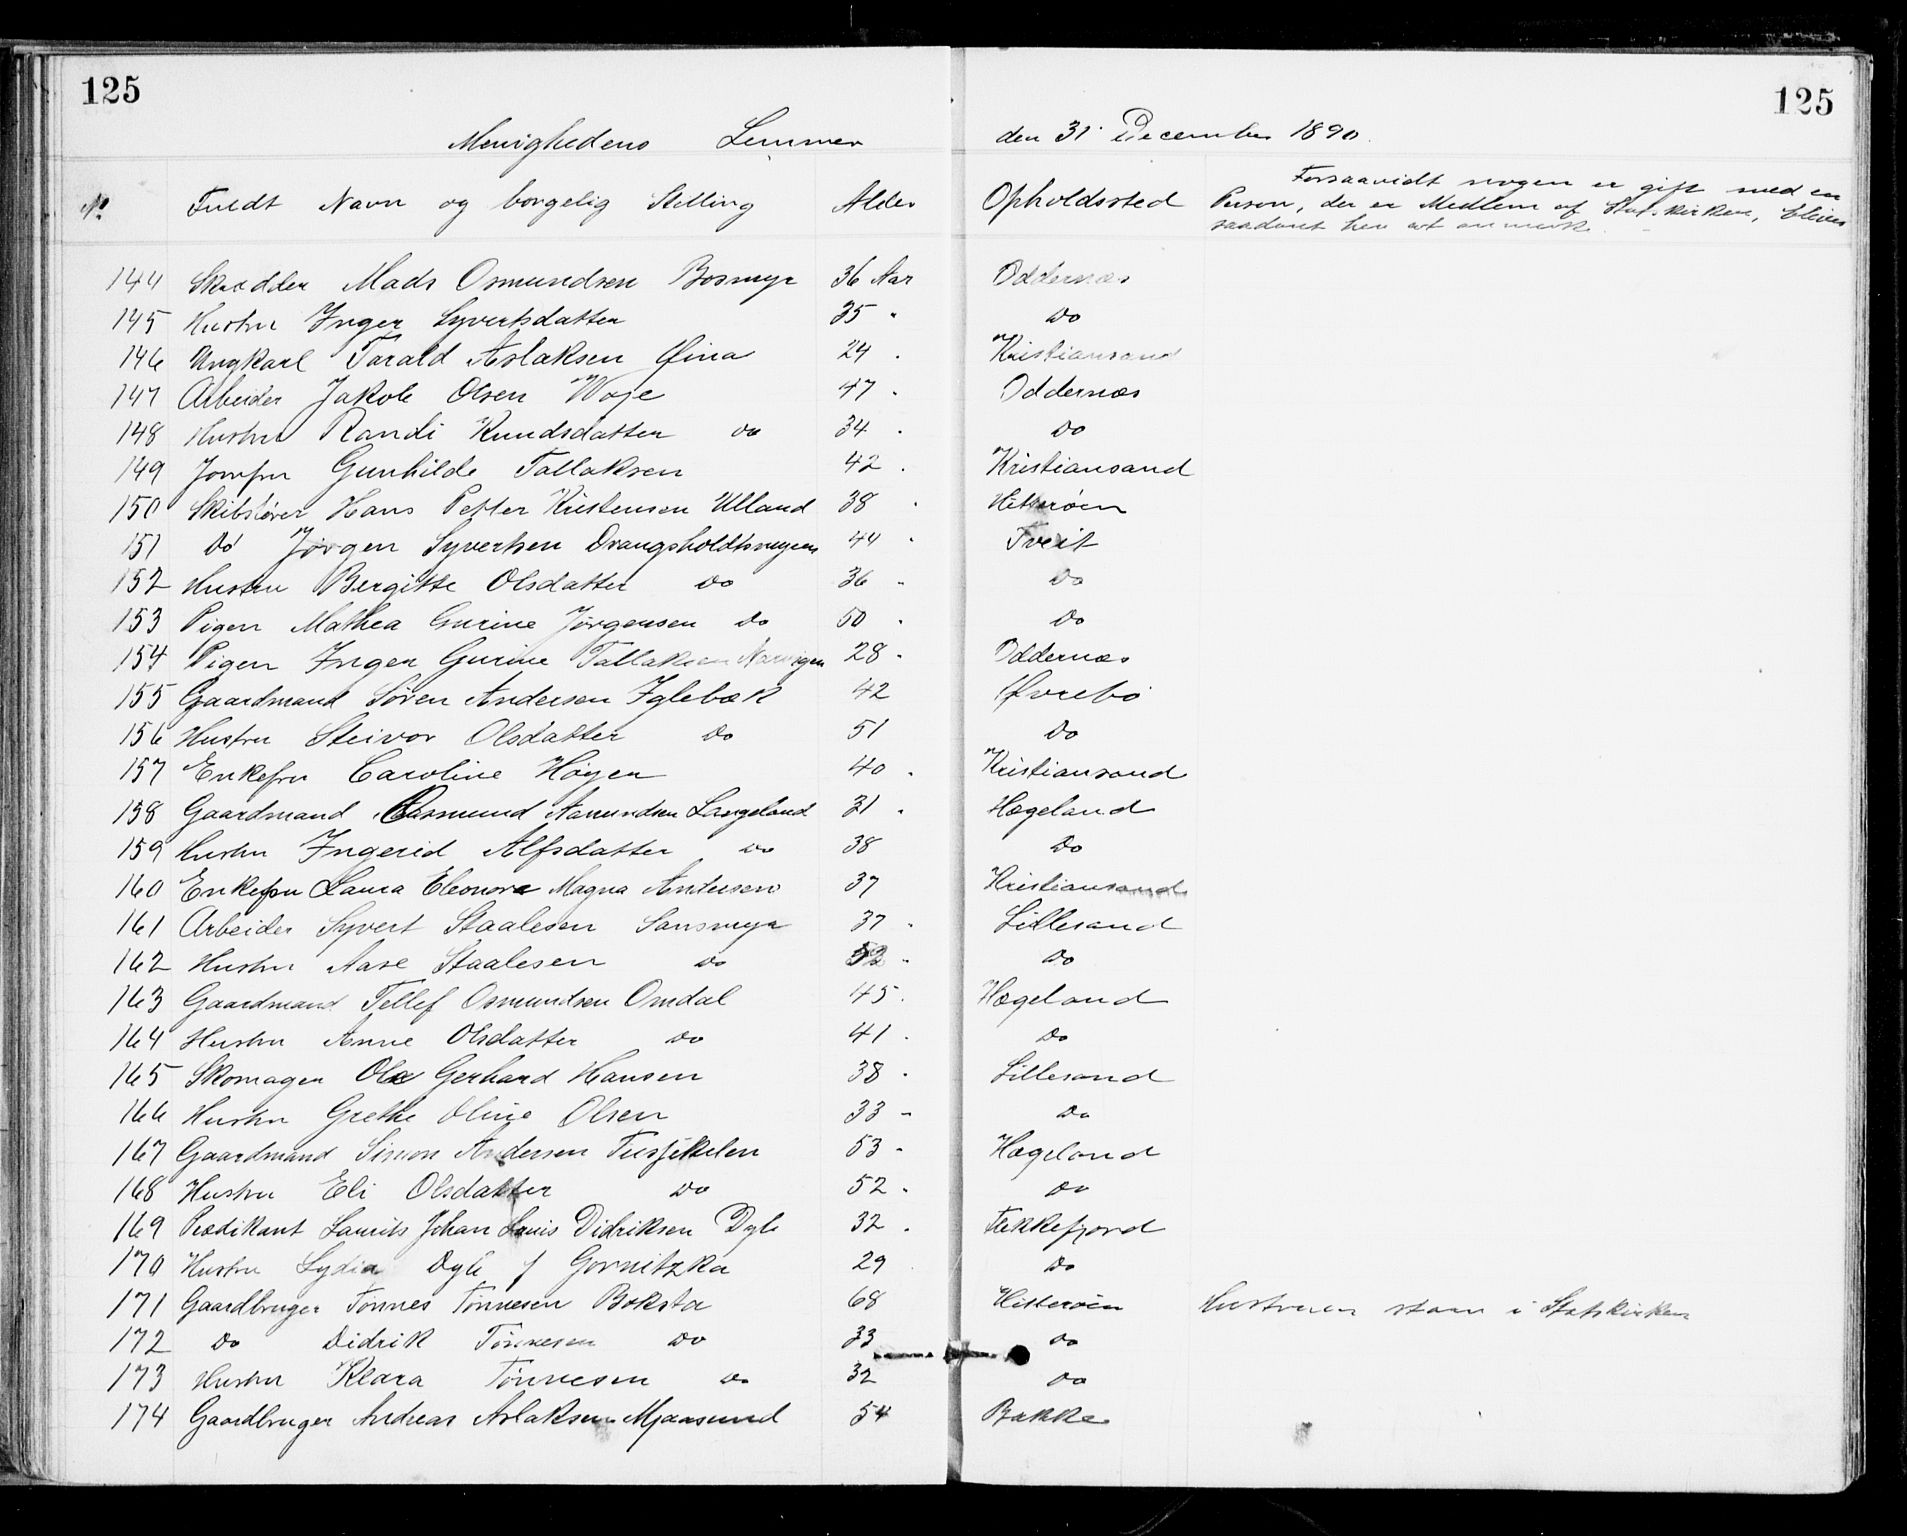 125 125
Menighedens Lemmer den 31 December 1890.
No Fuldt Navn og borgelig Stilling Alder Opholdssted Forsaavidt nogen er gift med en
Person, der er Medlem af Statskirken, blives
saadant her at anmærke.
144 Skrædder Mads Osmundsen Bosmyr 36 Aar Oddernæs
145 Hustru Inger Syvertsdatter 35 " Do
146 Ungkarl Tarald Aslaksen Øina 24 . Kristiansand
147 Arbeider Jakob Olsen Woje 47 . Oddernæs
148 Hustru Randi Knudsdatter do 34 . Do
149 Jomfru Gunhilde Tallaksen 42 . Kristiansand
150 Skibsfører Hans Petter Kristensen Ulland 38 " Hitterøen
151 Do Jørgen Syvertsen Drangsholdtsmyren 44 " Tveit
152 Hustru Bergitte Olsdatter Do 36 " Do
153 Pigen Mathea Gurine Jørgensen Do 50 . Do
154 Pigen Inger Gurine Tallaksen Narvigen 28 " Oddernæs
155 Gaardmand Søren Andersen Iglebæk 42 Øvrebø
156 Hustru Steivor Olsdatter Do 51 Do
157 Enkefru Caroline Høyer 40 . Kristiansand
158 Gaardmand Aasmund Aamundsen Langeland 31 " Hægeland
159 Hustru Ingerid Alfsdatter Do 38 Do
160 Enkefru Laura Eleonora Magna Andersen 37 Kristiansand
161 Arbeider Syvert Staalesen Sansmyr 37 " Lillesand
162 Hustru Aase Staalesen Do 52 " Do
163 Gaardmand Tellef Osmundsen Omdal 45 . Hægeland
164 Hustru Anne Olsdatter Do 41 . Do
165 Skomager Ole Gerhard Hansen 38 " Lillesand
166 Hustru Grethe Oline Olsen 33 " Do
167 Gaardmand Simon Andersen 53 " Hægeland
168 Hustru Eli Olsdatter Do 52 " Do
169 Prædikant Laurits Johan Louis Didriksen Dyb 32 . Flekkefjord
170 Hustru Lydia Dyb f Gornitzka 29 . Do
171 Gaardbruger Tønnes Tønnesen Boksta 68 Hitterøen Hustruen staar i Statskirken
172 Do Didrik Tønnesen Do 33 Do
173 Hustru Klara Tønnesen Do 32 Do
174 Gaardbruger Andreas Aslaksen Mjaasund 54 Bakke